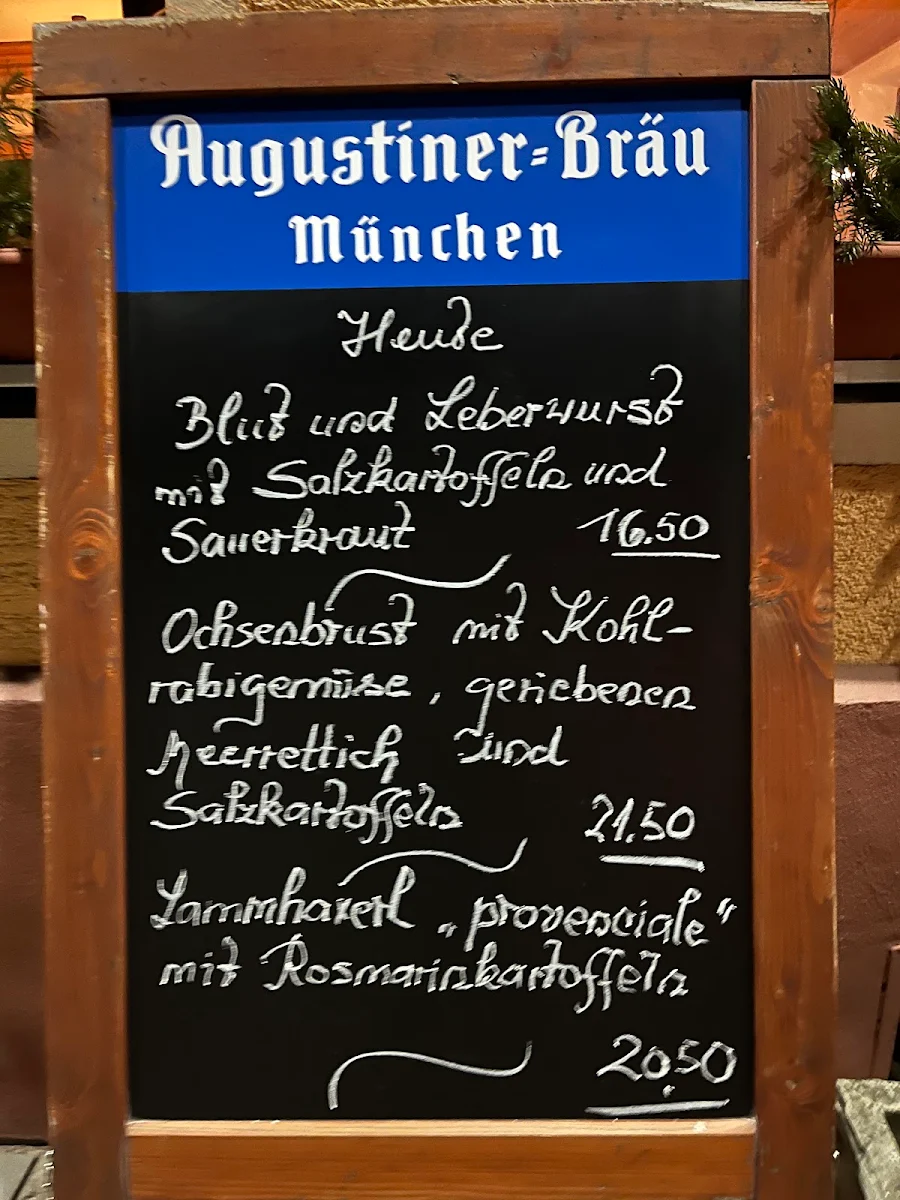 Augustiner-Bräu
München
Heute
Blut und Leberwurst
mit Salzkartoffeln und
Sauerkraut 16.50
Ochsenbrust mit Kohl-
rabigemüse, geriebenen
Meerrettich und
Salzkartoffeln 21.50
Lammhaxerl „provenciale“
mit Rosmarinkartoffeln
20.50